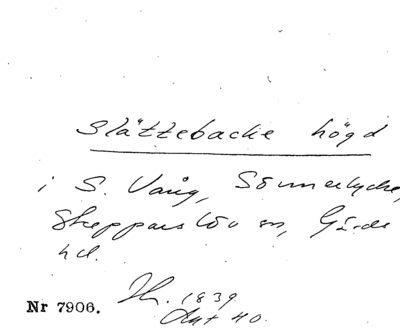 Slättebacke högd
i S. Vång, Sönnerlycke,
Skepparslöv sn, Gärds
hd.
Nr 7906. Th. 1839
Akt 40.